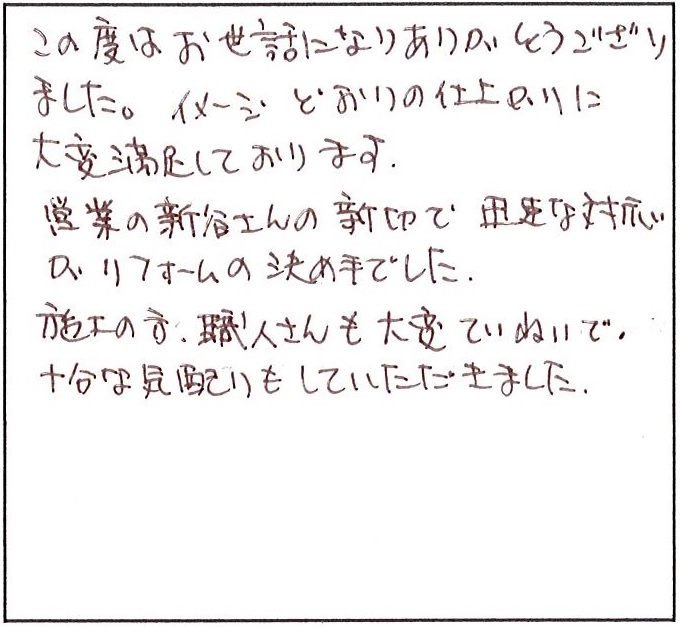 この度はお世話になりありがとうござい
ました。イメージどおりの仕上がりに
大変満足しております.
営業の新谷さんの親切で迅速な対応
がリフォームの決め手でした.
施工の方、職人さんも大変ていねいで、
十分な気配りもしていただきました.